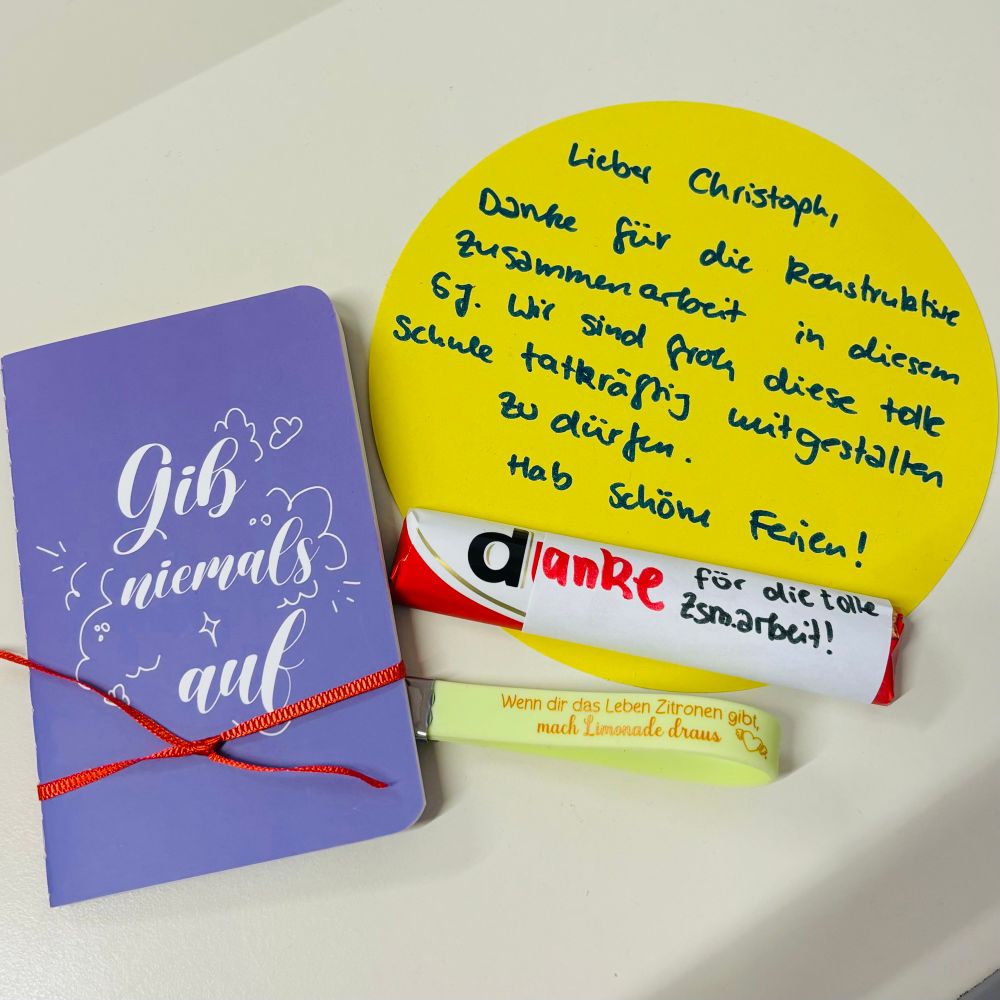 Gib
niemals
auf
Lieber Christoph,
Danke für die konstruktive
Zusammenarbeit in diesem
SJ. Wir sind froh diese tolle
Schule tatkräftig mitgestalten
zu dürfen.
Hab schöne Ferien!
danke für die tolle
Zsm.arbeit!
Wenn dir das Leben Zitronen gibt,
mach Limonade draus